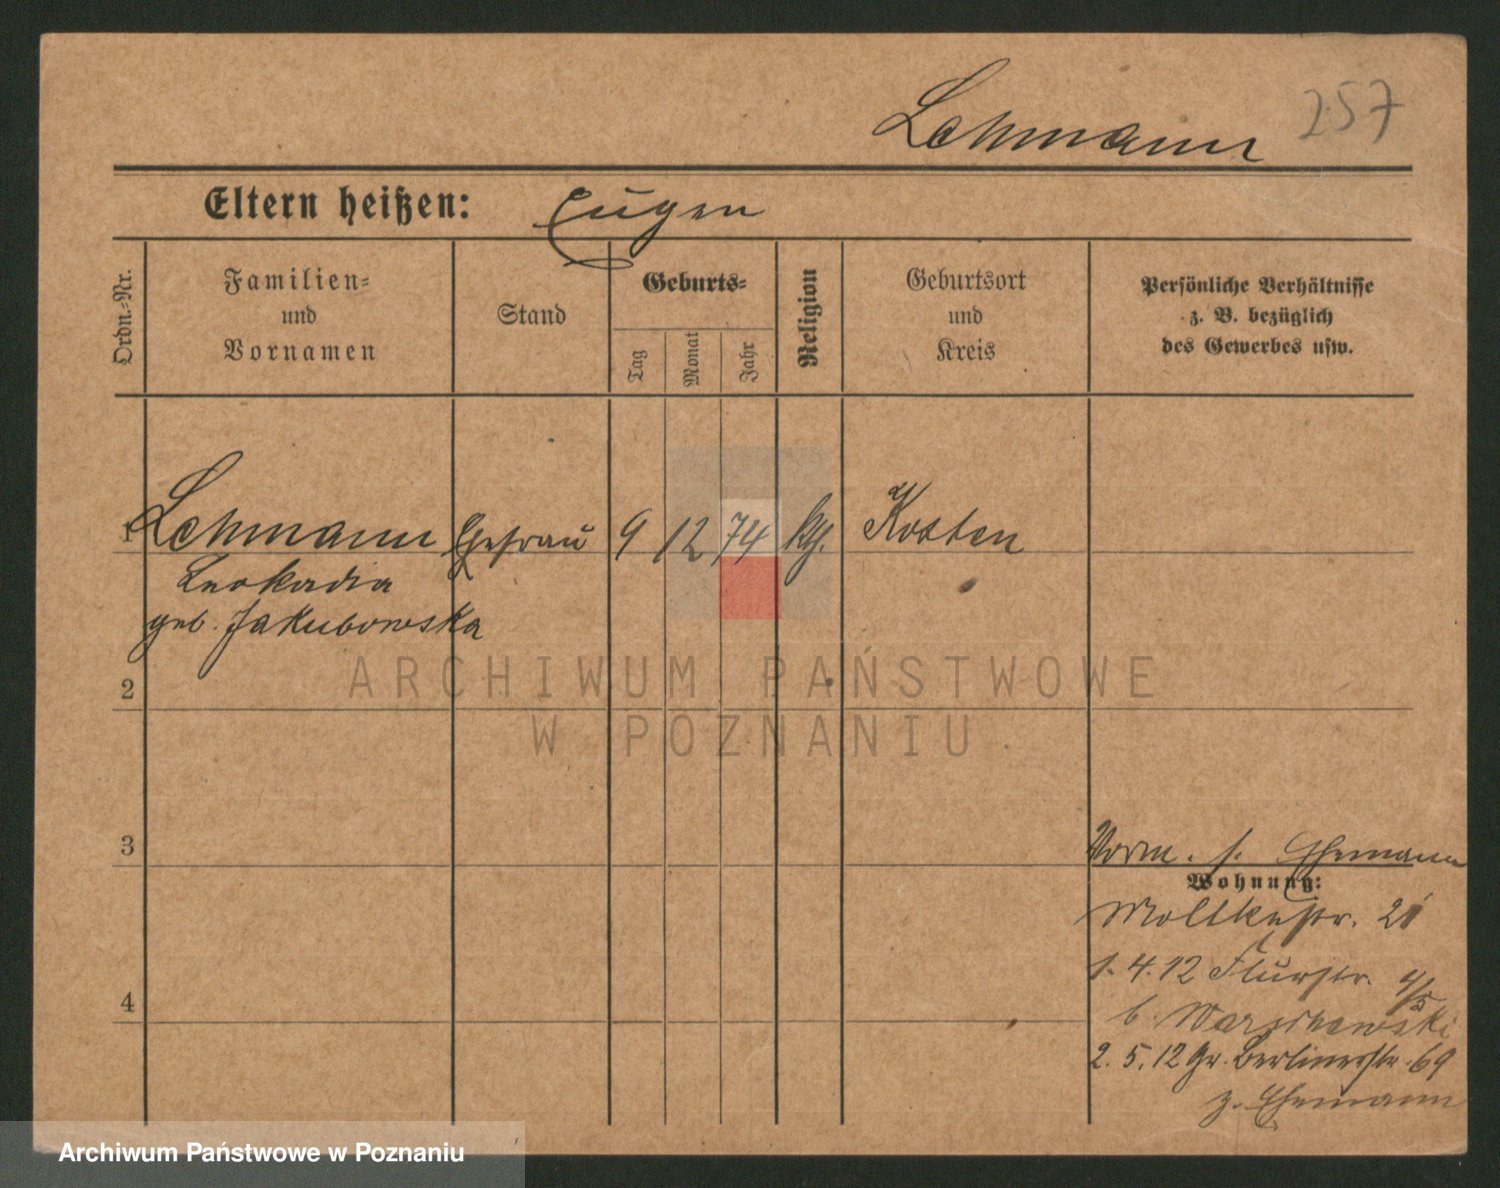 Lehmann 257
Eltern heißen: Eugen
Ordn.-Nr.
Familien-
und
Vornamen
Stand
Geburts-
Tag
Monat
Jahr
Religion
Geburtsort
und
Kreis
Persönliche Verhältnisse
z. B. bezüglich
des Gewerbes usw.
1 Lehmann Ehefrau 9 12 74 kth. Kosten
Leokadia
geb. Jakubowska
ARCHIWUM PAŃSTWOWE
W POZNANIU
2
3
Vorm. s. Ehemann
Wohnung:
Moltkestr. 21
1.4.12 Flurstr. 4/5
b. Warschewski
4
2.5.12 Gr. Berlinerstr. 69
z. Ehemann
Archiwum Państwowe w Poznaniu